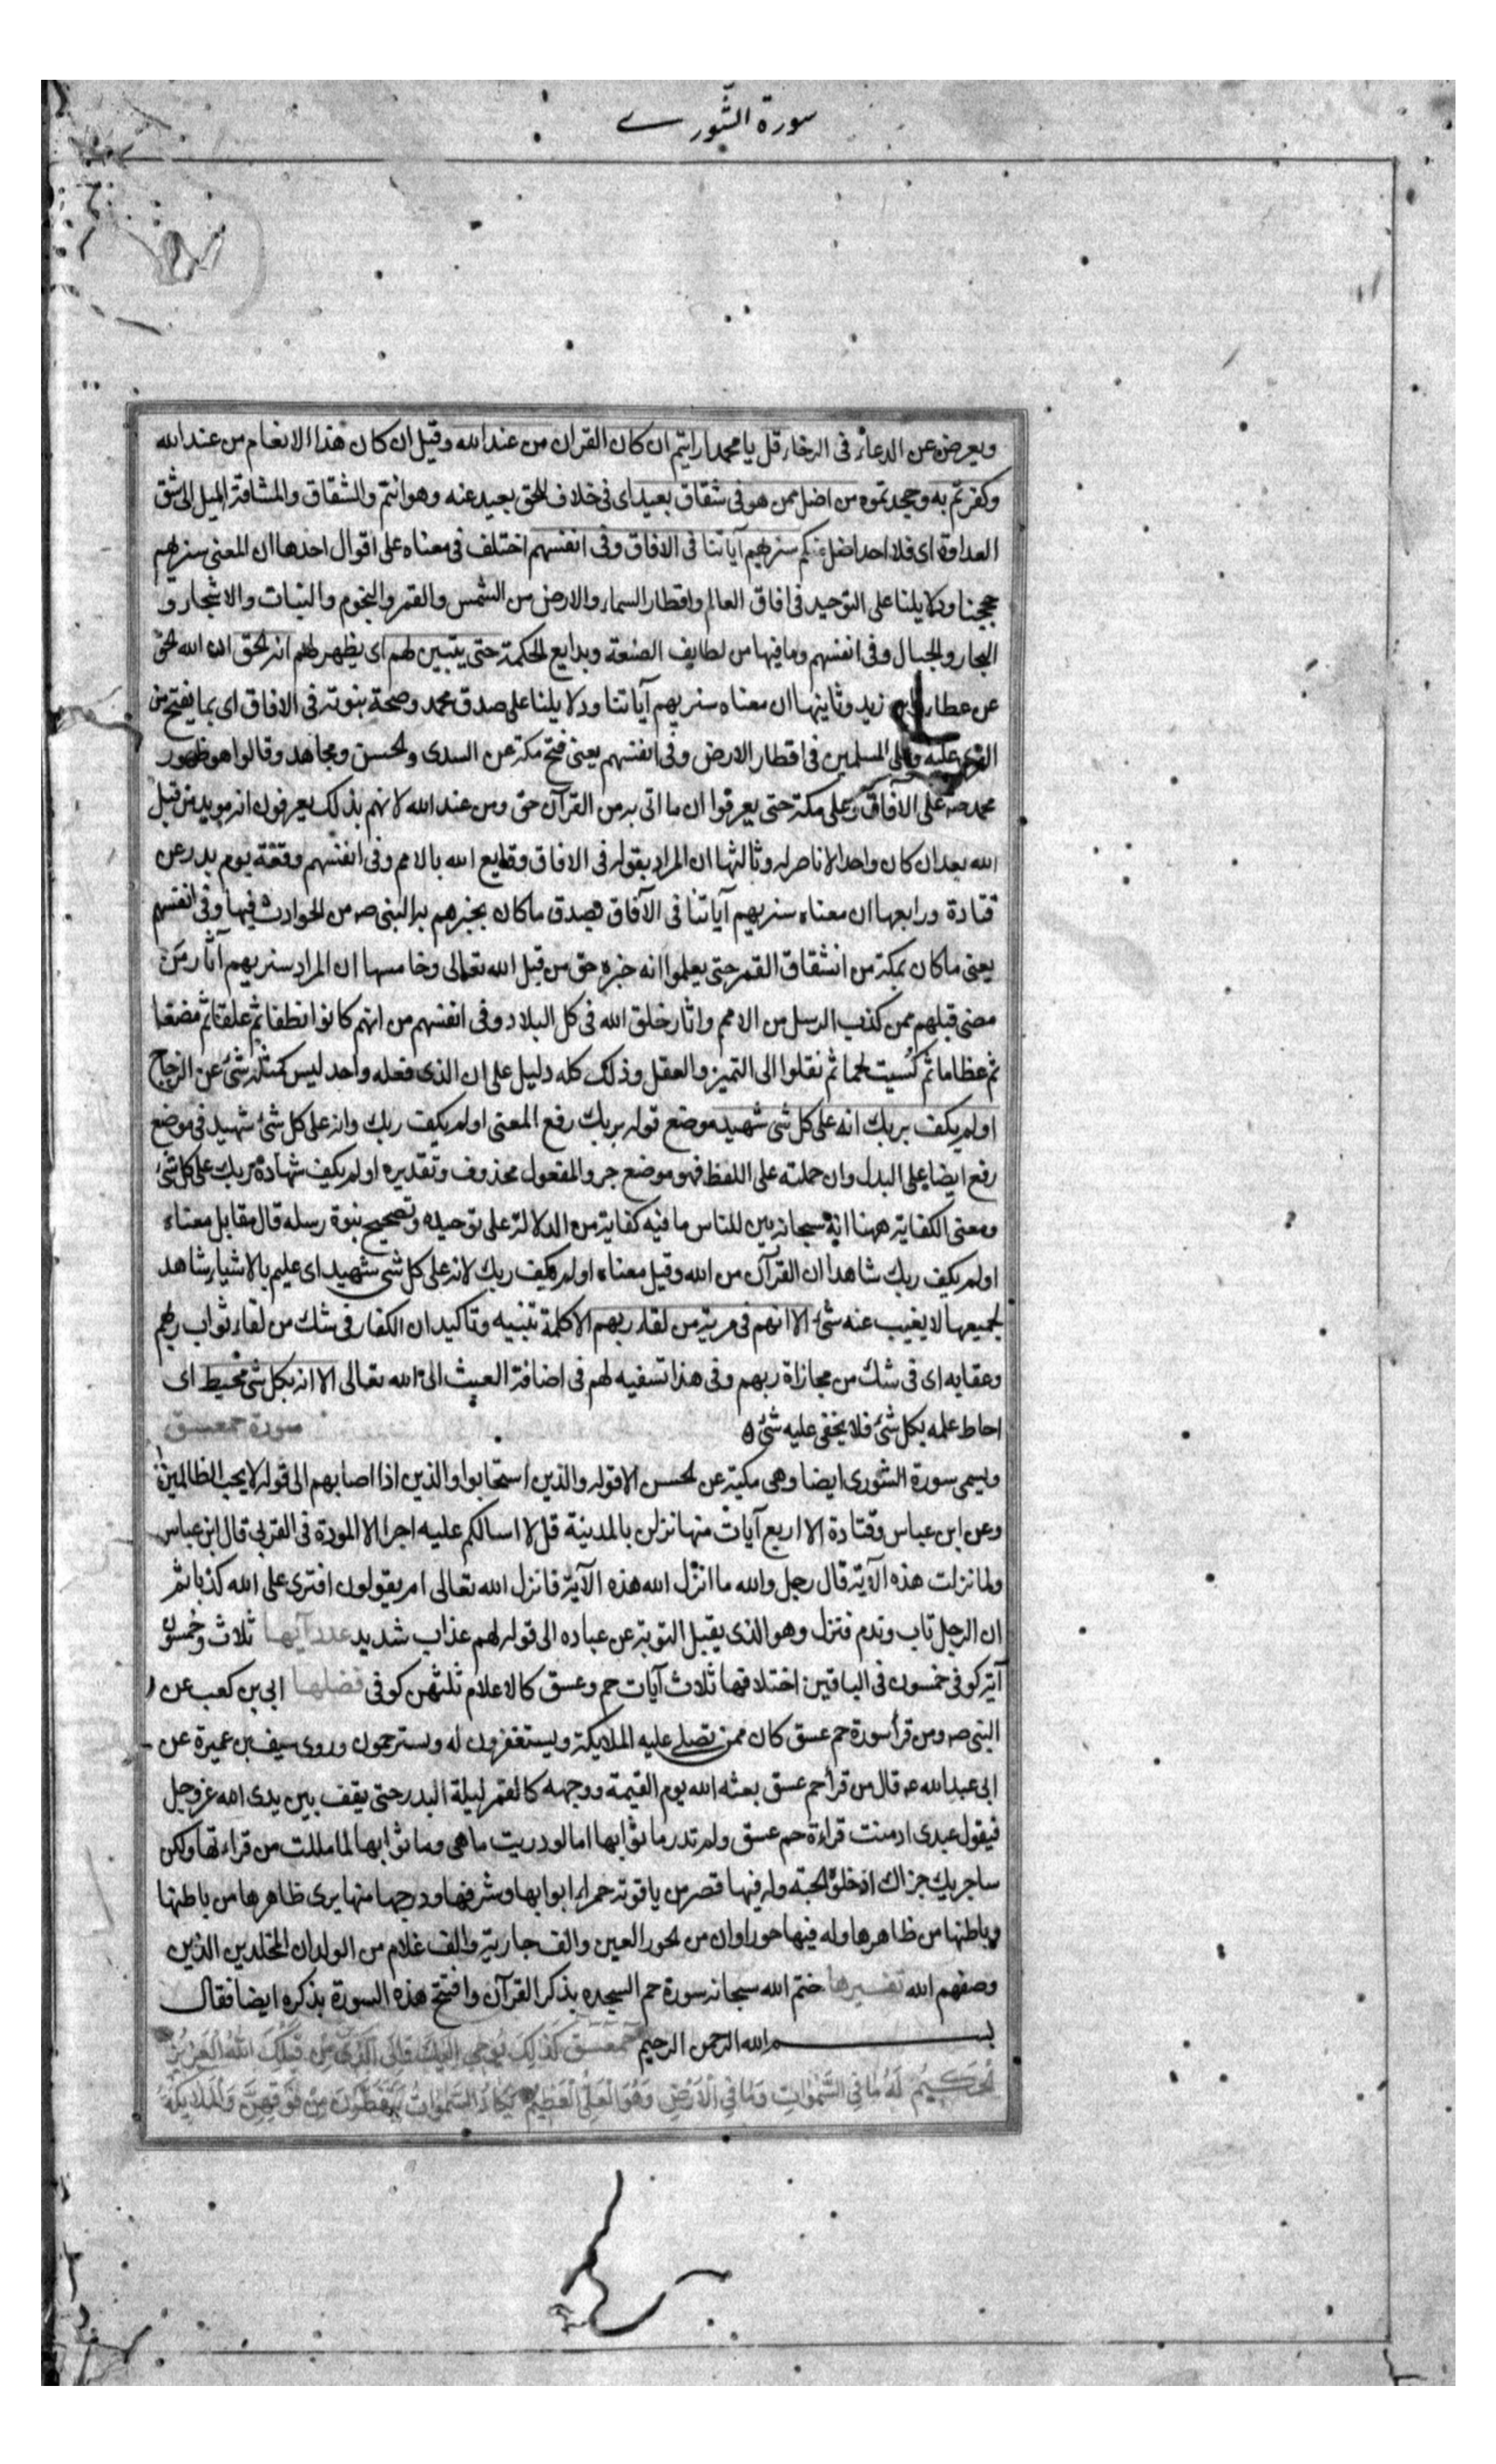 سورة الشورے
ويعرض عن الدعاء فى الرخاء قل يا محمد ارايتم ان كان القران من عند الله وقيل ان كان هذا الانعام من عند الله
وكفرتم به وجحدتموه من اضل ممن هو فى شقاق بعيد اى فى خلاف للحق بعيد عنه وهو انتم والشقاق والمشاقة الميل الى شق
العداوة اى فلا احد اضل منكم سنريهم آياتنا فى الافاق وفى انفسهم اختلف فى معناه على اقوال احدها ان المعنى سنريهم
حججنا ودلايلنا على التوحيد فى افاق العالم واقطار السماء والارض من الشمس والقمر والنجوم والنبات والاشجار و
البحار والجبال وفى انفسهم وما فيها من لطايف الصنعة وبدايع الحكمة حتى يتبين لهم اى يظهر لهم انه الحق ان الله الحق
عن عطاء وابن زيد وثانيها ان معناه سنريهم آياتنا ودلايلنا على صدق محمد وصحة نبوته فى الافاق اى بما يفتح من
القرى عليه وعلى المسلمين فى اقطار الارض وفى انفسهم يعنى فتح مكة عن السدى والحسن ومجاهد وقالوا هو ظهور
محمد صه على الآفاق وعلى مكة حتى يعرفوا ان ما اتى به من القرآن حق ومن عند الله لانهم بذلك يعرفون انه مويد من قبل
الله بعد ان كان واحدا لا ناصر له وثالثها ان المراد بقوله فى الافاق وقايع الله بالامم وفى انفسهم وقعة يوم بدر عن
قتادة ورابعها ان معناه سنريهم آياتنا فى الآفاق بصدق ما كان يخبرهم به النبى صه من الحوادث فيها وفى انفسهم
يعنى ما كان بمكة من انشقاق القمر حتى يعلموا انه خبره حق من قبل الله تعالى وخامسها ان المراد سنريهم آثار من
مضى قبلهم ممن كذب الرسل من الامم واثار خلق الله فى كل البلاد وفى انفسهم من انهم كانوا نطفا ثم علقا ثم مضغا
ثم عظاما ثم كُسيت لحما ثم نقلوا الى التميز والعقل وذلك كله دليل على ان الذى فعله واحد ليس كمثله شئ عن الزجاج
اولم يكف بربك انه على كل شئ شهيد موضع قوله بربك رفع المعنى اولم يكف ربك وانه على كل شئ شهيد فى موضع
رفع ايضا على البدل وان حملته على اللفظ فهو موضع جر والمفعول محذوف وتقديره اولم يكف شهادة ربك على كل شئ
ومعنى الكفاية ههنا انه سبحانه بين للناس ما فيه كفاية من الدلالة على توحيده وتصحيح نبوة رسله قال مقاتل معناه
اولم يكف ربك شاهدا ان القرآن من الله وقيل معناه اولم يكف ربك لانه على كل شئ شهيد اى عليم بالاشياء شاهد
لجميعها لا يغيب عنه شئ الا انهم فى مرية من لقاء ربهم الا كلمة تنبيه وتاكيد ان الكفار فى شك من لقاء ثواب ربهم
وعقابه اى فى شك من مجازاة ربهم وفى هذا تسفيه لهم فى اضافة العبث الى الله تعالى الا انه بكل شئ محيط اى
احاط علمه بكل شئ فلا يخفى عليه شئ ه سورة حمعسق
ويسمى سورة الشورى ايضا وهى مكية عن الحسن الا قوله والذين استجابوا والذين اذا اصابهم الى قوله لا يحب الظالمين
وعن ابن عباس وقتادة الا اربع آيات منها نزلن بالمدينة قل لا اسالكم عليه اجرا الا المودة فى القربى قال ابن عباس
ولما نزلت هذه الآية قال رجل والله ما انزل الله هذه الآية فانزل الله تعالى ام يقولون افترى على الله كذبا ثم
ان الرجل تاب وندم فنزل وهو الذى يقبل التوبة عن عباده الى قوله لهم عذاب شديد عدد آيها ثلاث وخمسون
آية كوفى خمسون فى الباقين اختلافها ثلاث آيات حم وعسق كالاعلام ثلثهن كوفى فضلها ابى بن كعب عن
النبى صه ومن قرأ سورة حم عسق كان ممن تصلى عليه الملايكة ويستغفرون له ويسترحمون وروى سيف بن عميرة عن
ابى عبد الله عه قال من قرأ حم عسق بعثه الله يوم القيمة ووجهه كالقمر ليلة البدر حتى يقف بين يدى الله عز وجل
فيقول عبدى ادمنت قراءة حم عسق ولم تدر ما ثوابها اما لو دريت ما هى وما ثوابها لما مللت من قراءتها ولكن
ساجزيك جزاك ادخلوه الجنة وله فيها قصر من ياقوتة حمراء ابوابها وشرفها ودرجها منها يرى ظاهرها من باطنها
وباطنها من ظاهرها وله فيها حوراوان من الحور العين والف جارية والف غلام من الولدان المخلدين الذين
وصفهم الله تفسيرها ختم الله سبحانه سورة حم السجده بذكر القرآن وافتتح هذه السورة بذكره ايضا فقال
بسم الله الرحمن الرحيم حمعسق كَذلِكَ يُوحِي اِلَيْكَ وَاِلَى الَّذِينَ مِنْ قَبْلِكَ اللّهُ الْعَزِيزُ
الْحَكِيمُ لَهُ مَا فِي السَّمٰوَاتِ وَمَا فِي الْاَرْضِ وَهُوَ الْعَلِيُّ الْعَظِيمُ تَكَادُ السَّمٰوَاتُ يَتَفَطَّرْنَ مِنْ فَوْقِهِنَّ وَالْمَلَايِكَةُ